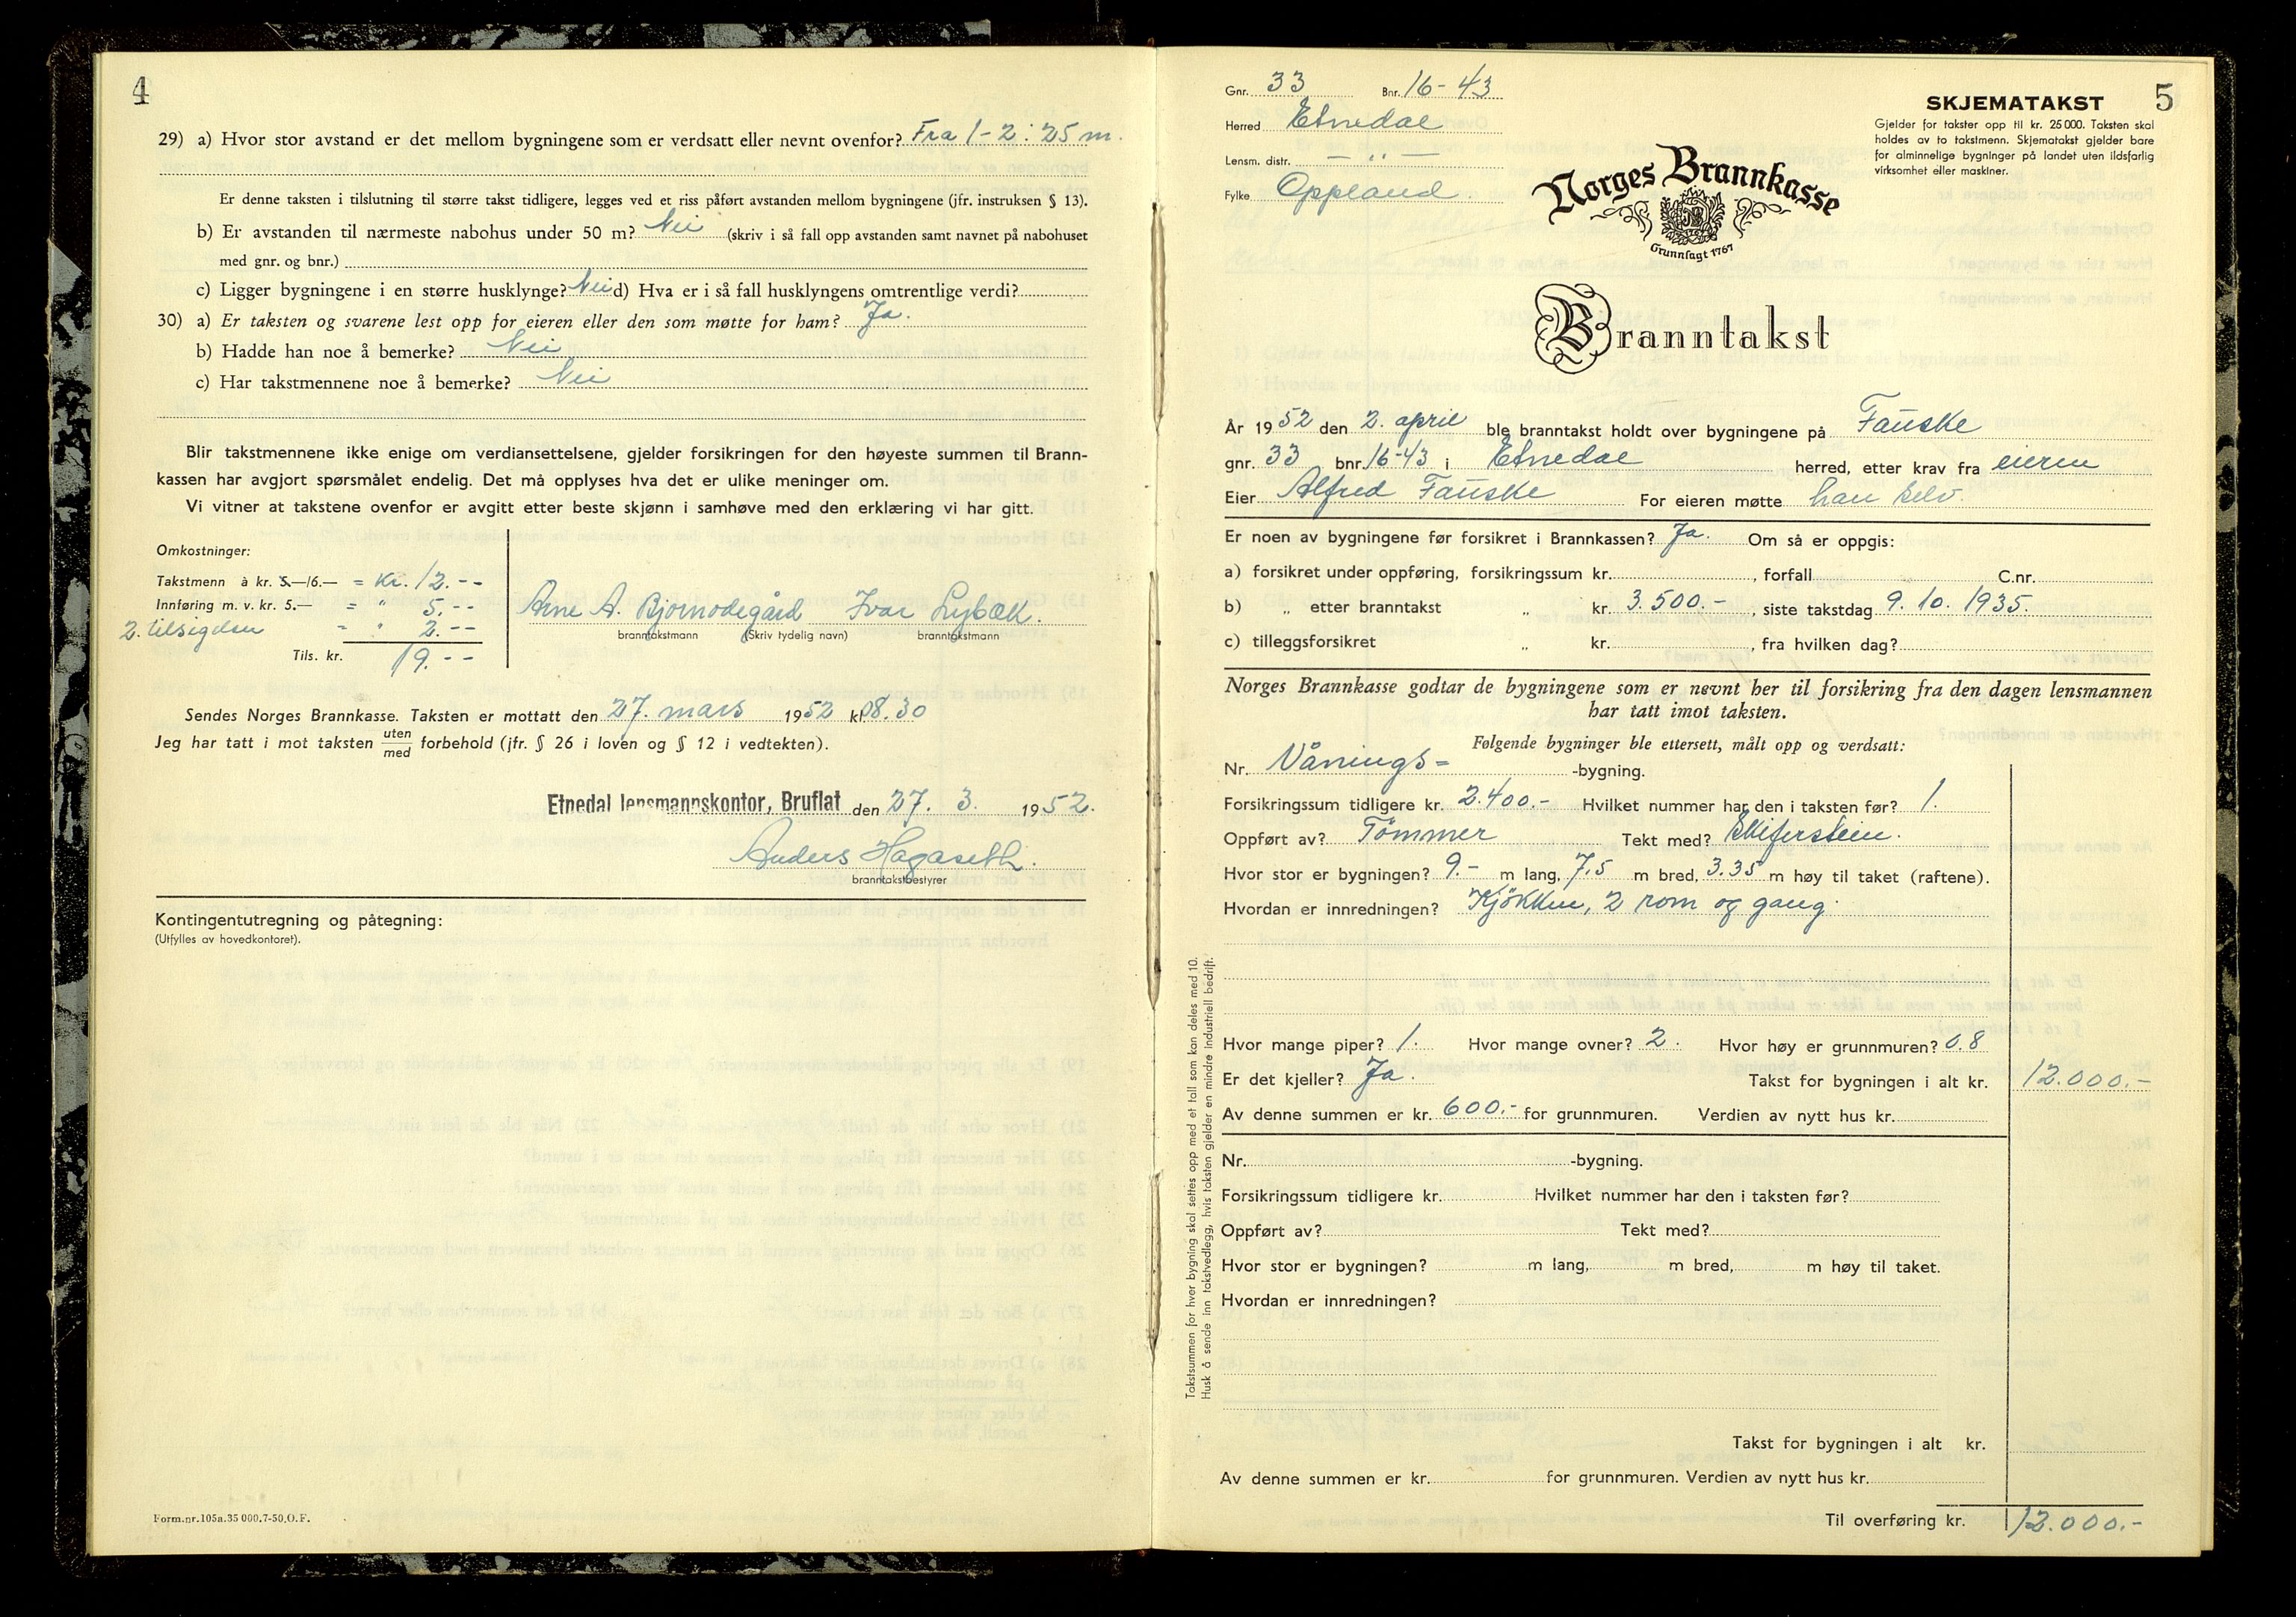 4
29) a) Hvor stor avstand er det mellom bygningene som er verdsatt eller nevnt ovenfor? Fra 1-2: 25 m.
Er denne taksten i tilslutning til større takst tidligere, legges ved et riss påført avstanden mellom bygningene (jfr. instruksen § 13).
b) Er avstanden til nærmeste nabohus under 50 m? Nei (skriv i så fall opp avstanden samt navnet på nabohuset
med gnr. og bnr.)
c) Ligger bygningene i en større husklynge? Nei d) Hva er i så fall husklyngens omtrentlige verdi?
30) a) Er taksten og svarene lest opp for eieren eller den som møtte for ham? Ja.
b) Hadde han noe å bemerke? Nei
c) Har takstmennene noe å bemerke? Nei
Blir takstmennene ikke enige om verdiansettelsene, gjelder forsikringen for den høyeste summen til Brann-
kassen har avgjort spørsmålet endelig. Det må opplyses hva det er ulike meninger om.
Vi vitner at takstene ovenfor er avgitt etter beste skjønn i samhøve med den erklæring vi har gitt.
Omkostninger:
Takstmenn à kr. 5.—/6.— = Kr. 12.--
Innføring m. v. kr. 5.— = " 5.--
2. tilsigelser = " 2.--
Tils. kr. 19.--
Arne A. Bjørnødegård Ivar Lybæk.
branntakstmann (Skriv tydelig navn) branntakstmann
Sendes Norges Brannkasse. Taksten er mottatt den 27. mars 1952 kl. 08.30
Jeg har tatt i mot taksten uten/med forbehold (jfr. § 26 i loven og § 12 i vedtekten).
Etnedal lensmannskontor, Bruflat den 27. 3. 1952.
Anders Hagaseth.
branntakstbestyrer
Kontingentutregning og påtegning:
(Utfylles av hovedkontoret).
Form.nr.105a.35 000.7-50.O.F.
5
Gnr. 33 Bnr. 16-43
Herred Etnedal
Lensm. distr. — " —
Fylke Oppland.
SKJEMATAKST
Gjelder for takster opp til kr. 25 000. Taksten skal
holdes av to takstmenn. Skjematakst gjelder bare
for alminnelige bygninger på landet uten ildsfarlig
virksomhet eller maskiner.
Norges Brannkasse
Grunnlagt 1767
Branntakst
År 1952 den 2. april ble branntakst holdt over bygningene på Fauske
gnr. 33 bnr. 16-43 i Etnedal herred, etter krav fra eieren
Eier Alfred Fauske For eieren møtte han selv.
Er noen av bygningene før forsikret i Brannkassen? Ja. Om så er oppgis:
a) forsikret under oppføring, forsikringssum kr. , forfall C.nr.
b) „ etter branntakst „ kr. 3.500.- , siste takstdag 9. 10. 1935.
c) tilleggsforsikret „ kr. , fra hvilken dag?
Norges Brannkasse godtar de bygningene som er nevnt her til forsikring fra den dagen lensmannen
har tatt imot taksten.
Følgende bygninger ble ettersett, målt opp og verdsatt:
Nr. Vånings= -bygning.
Forsikringssum tidligere kr. 2.400.- Hvilket nummer har den i taksten før? 1.
Oppført av? Tömmer Tekt med? Skiferstein.
Hvor stor er bygningen? 9.- m lang, 7,5 m bred, 3.35 m høy til taket (raftene).
Hvordan er innredningen? Kjökken, 2 rom og gang.
Hvor mange piper? 1. Hvor mange ovner? 2. Hvor høy er grunnmuren? 0.8
Er det kjeller? Ja. Takst for bygningen i alt kr. 12.000.-
Av denne summen er kr. 600.- for grunnmuren. Verdien av nytt hus kr.
Nr. -bygning.
Forsikringssum tidligere kr. Hvilket nummer har den i taksten før?
Oppført av? Tekt med?
Hvor stor er bygningen? m lang, m bred, m høy til taket.
Hvordan er innredningen?
Takst for bygningen i alt kr.
Av denne summen er kr. for grunnmuren. Verdien av nytt hus kr.
Til overføring kr. 12.000.-
Takstsummen for hver bygning skal settes opp med et tall som kan deles med 10.
Husk å sende inn takstvedlegg, hvis taksten gjelder en mindre industriell bedrift.